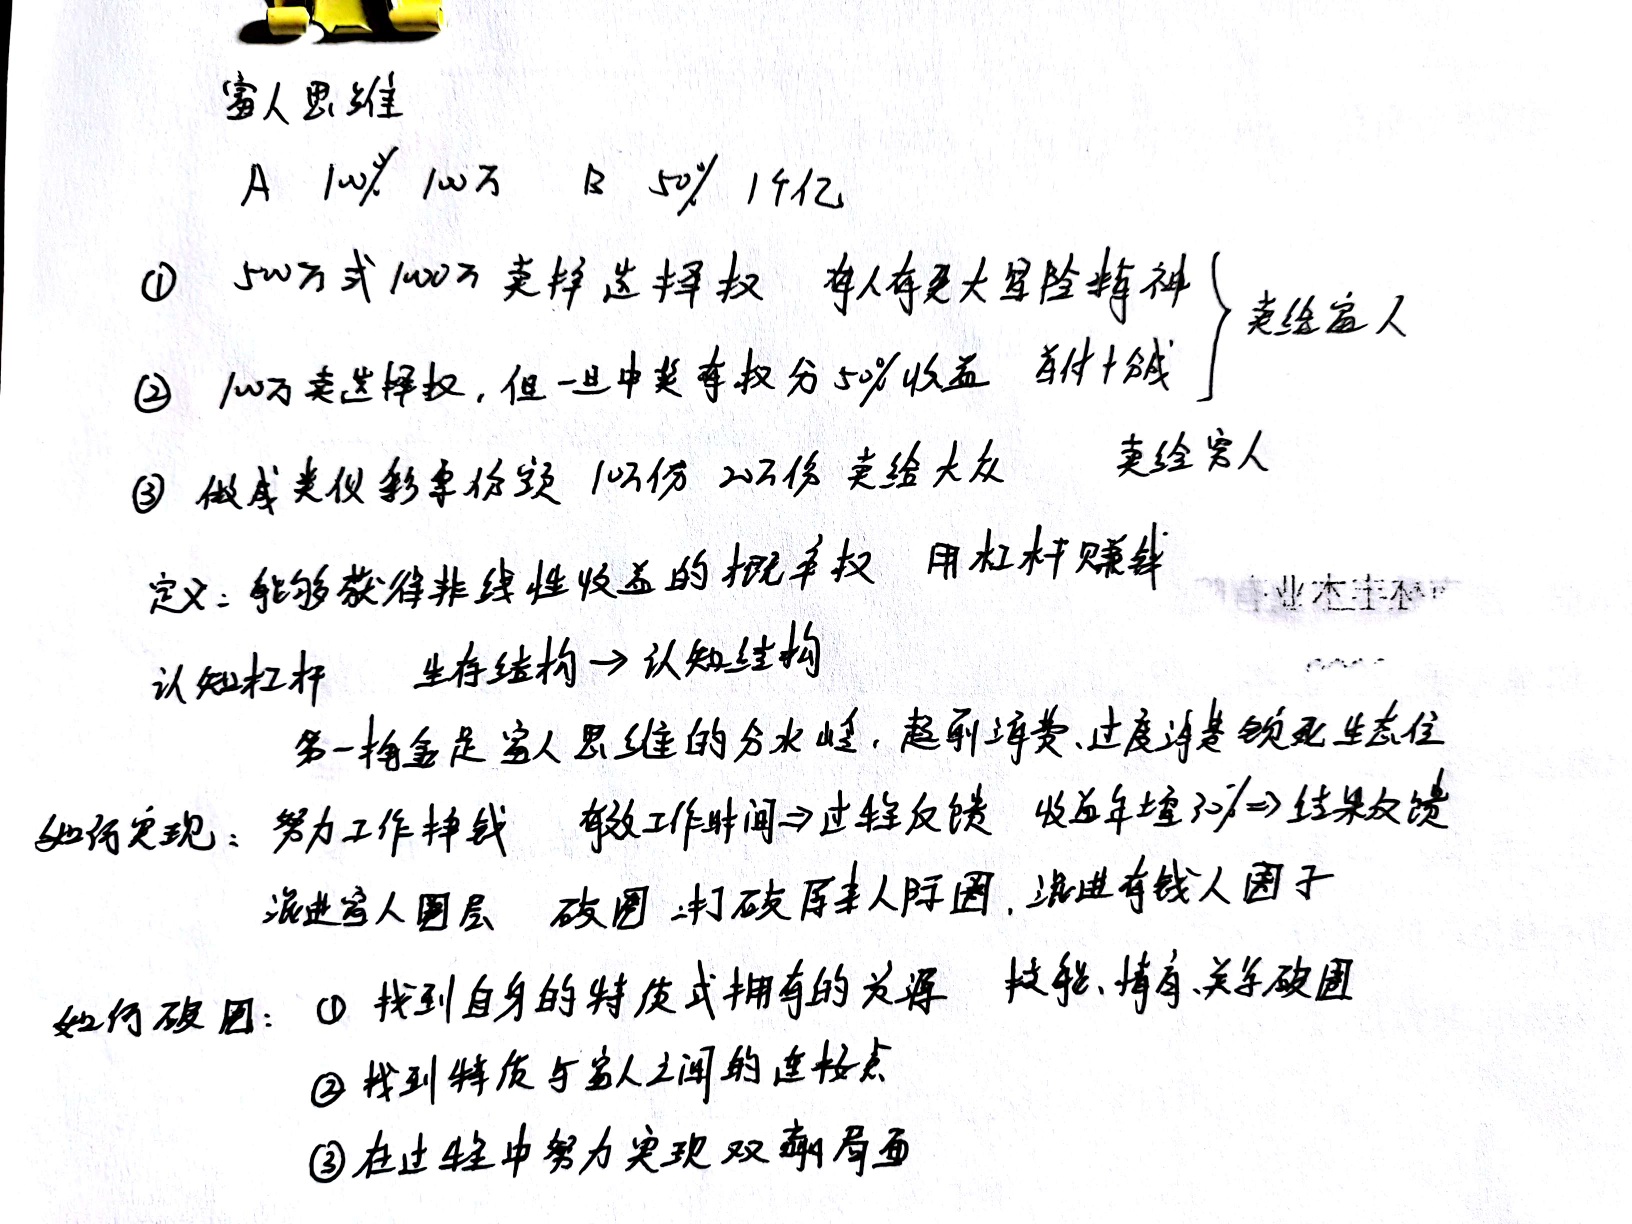 富人思维
A 100% 100万 B 50% 1个亿
① 500万或1000万卖掉选择权 有人有更大冒险精神 卖给富人
② 100万卖选择权，但一旦中奖有权分50%收益 首付+分成
③ 做成类似彩票份额 10万份 20万份 卖给大众 卖给穷人
定义：能够获得非线性收益的概率权 用杠杆赚钱
认知杠杆 生存结构→认知结构
第一桶金是富人思维的分水岭，超前消费、过度消费锁死生态位
如何实现：努力工作挣钱 有效工作时间⇒过程反馈 收益年增30%⇒结果反馈
混进富人圈层 破圈：打破原来人际圈，混进有钱人圈子
如何破圈：① 找到自身的特质或拥有的资源 技能、情商、关系破圈
② 找到特质与富人之间的连接点
③ 在过程中努力实现双赢局面